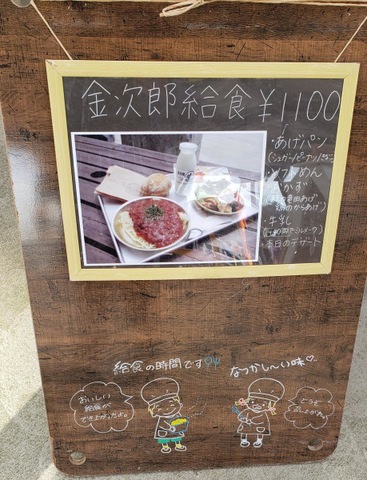 金次郎給食 ¥1100
・あげパン
(シュガー/ピーナツ/きなこ)
・ソフトめん
・おかず
・牛乳
・本日のデザート
給食の時間です
なつかし〜い味♡
おいしい
給食が
できあがったよ
どうぞ